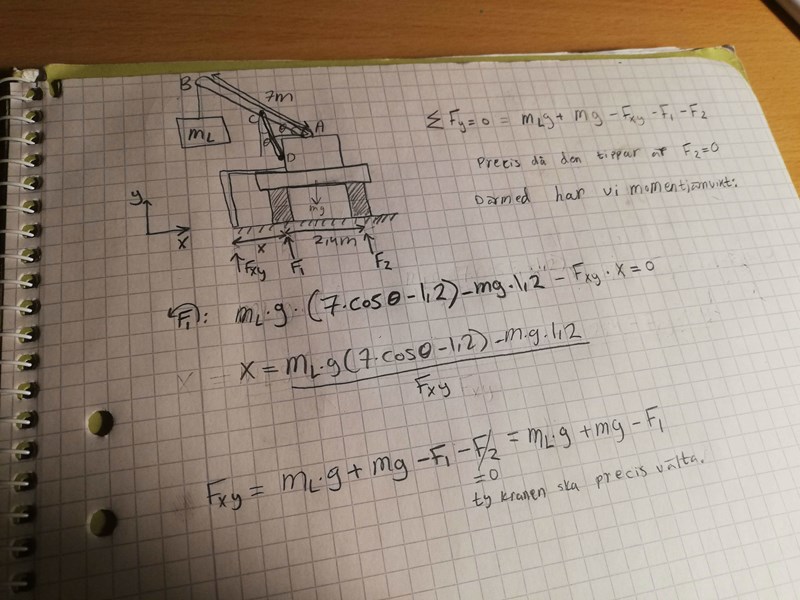 B
7m
C
θ
A
m_L
θ
D
mg
y
x
x
2,4m
F_xy
F_1
F_2
ΣF_y=0 = m_L g + mg - F_xy - F_1 - F_2
Precis då den tippar är F_2=0
Därmed har vi momentjämvikt:
F_1: m_L·g·(7·cosθ-1,2)-mg·1,2 - F_xy·x=0
x = m_L·g(7·cosθ-1,2)-m·g·1,2
F_xy
F_xy = m_L·g + mg - F_1 - F_2 = m_L·g + mg - F_1
=0
ty kranen ska precis välta.